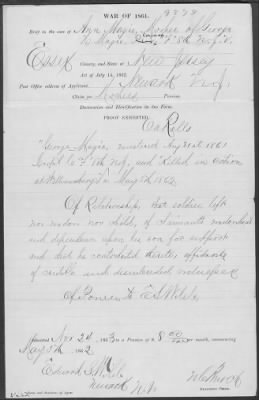 WAR OF 1861.
Brief in the case of Ann Magie, Mother of George
Magie, Co. "F" 8th N.J.V.
Essex County, and State of New Jersey
Act of July 14, 1862.
Post Office address of Applicant, Newark N.J.
Claim for Pension.
Declaration and Identification in due form.
PROOF EXHIBITED.
On Rolls
"George Magie, mustered Aug 31st 1861
Co. F 8th N.J., and Killed in action
at Williamsburg Va May 5th 1862.
Of Relationship, that soldier left
nor widow nor child, of Claimant's widowhood
and dependence upon her son for support
and that he contributed thereto, affidavits
of credible and disinterested
Admitted Nov 24 1863 to a Pension of $8 00/100 per month, commencing
May 5th 1862
Edward
Newark N.J.